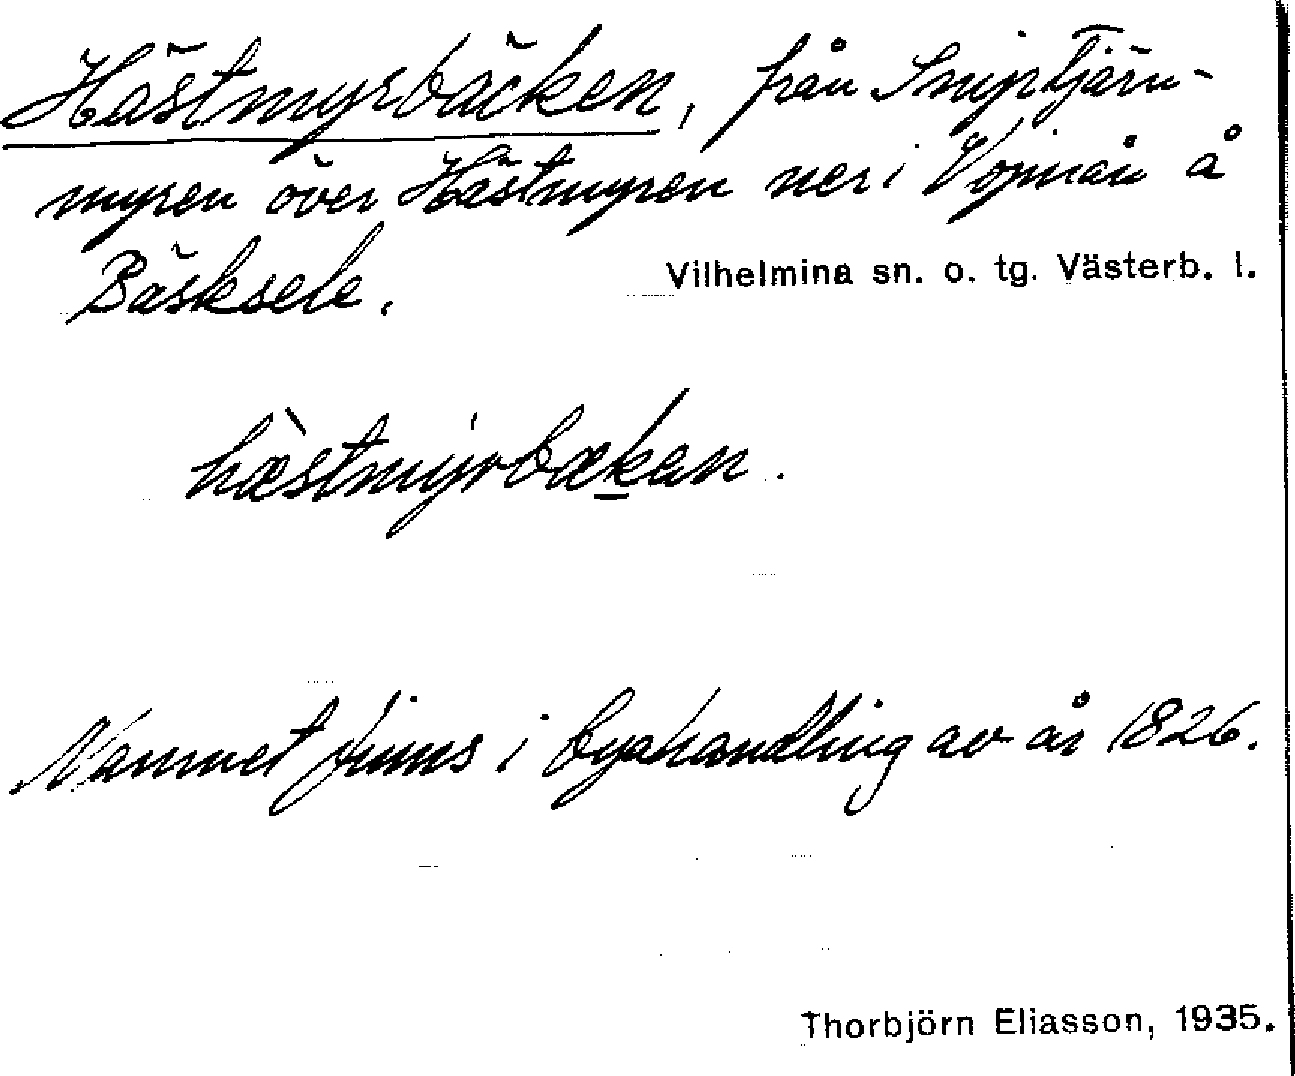 Hästmyrbäcken, från Sniptjärn-
myren över Hästmyren ner i Vojmån å
Bäsksele.
Vilhelmina sn. o. tg. Västerb. l.
hæ̀stmýrbæk̲an.
Namnet finns i byahandling av år 1826.
Thorbjörn Eliasson, 1935.